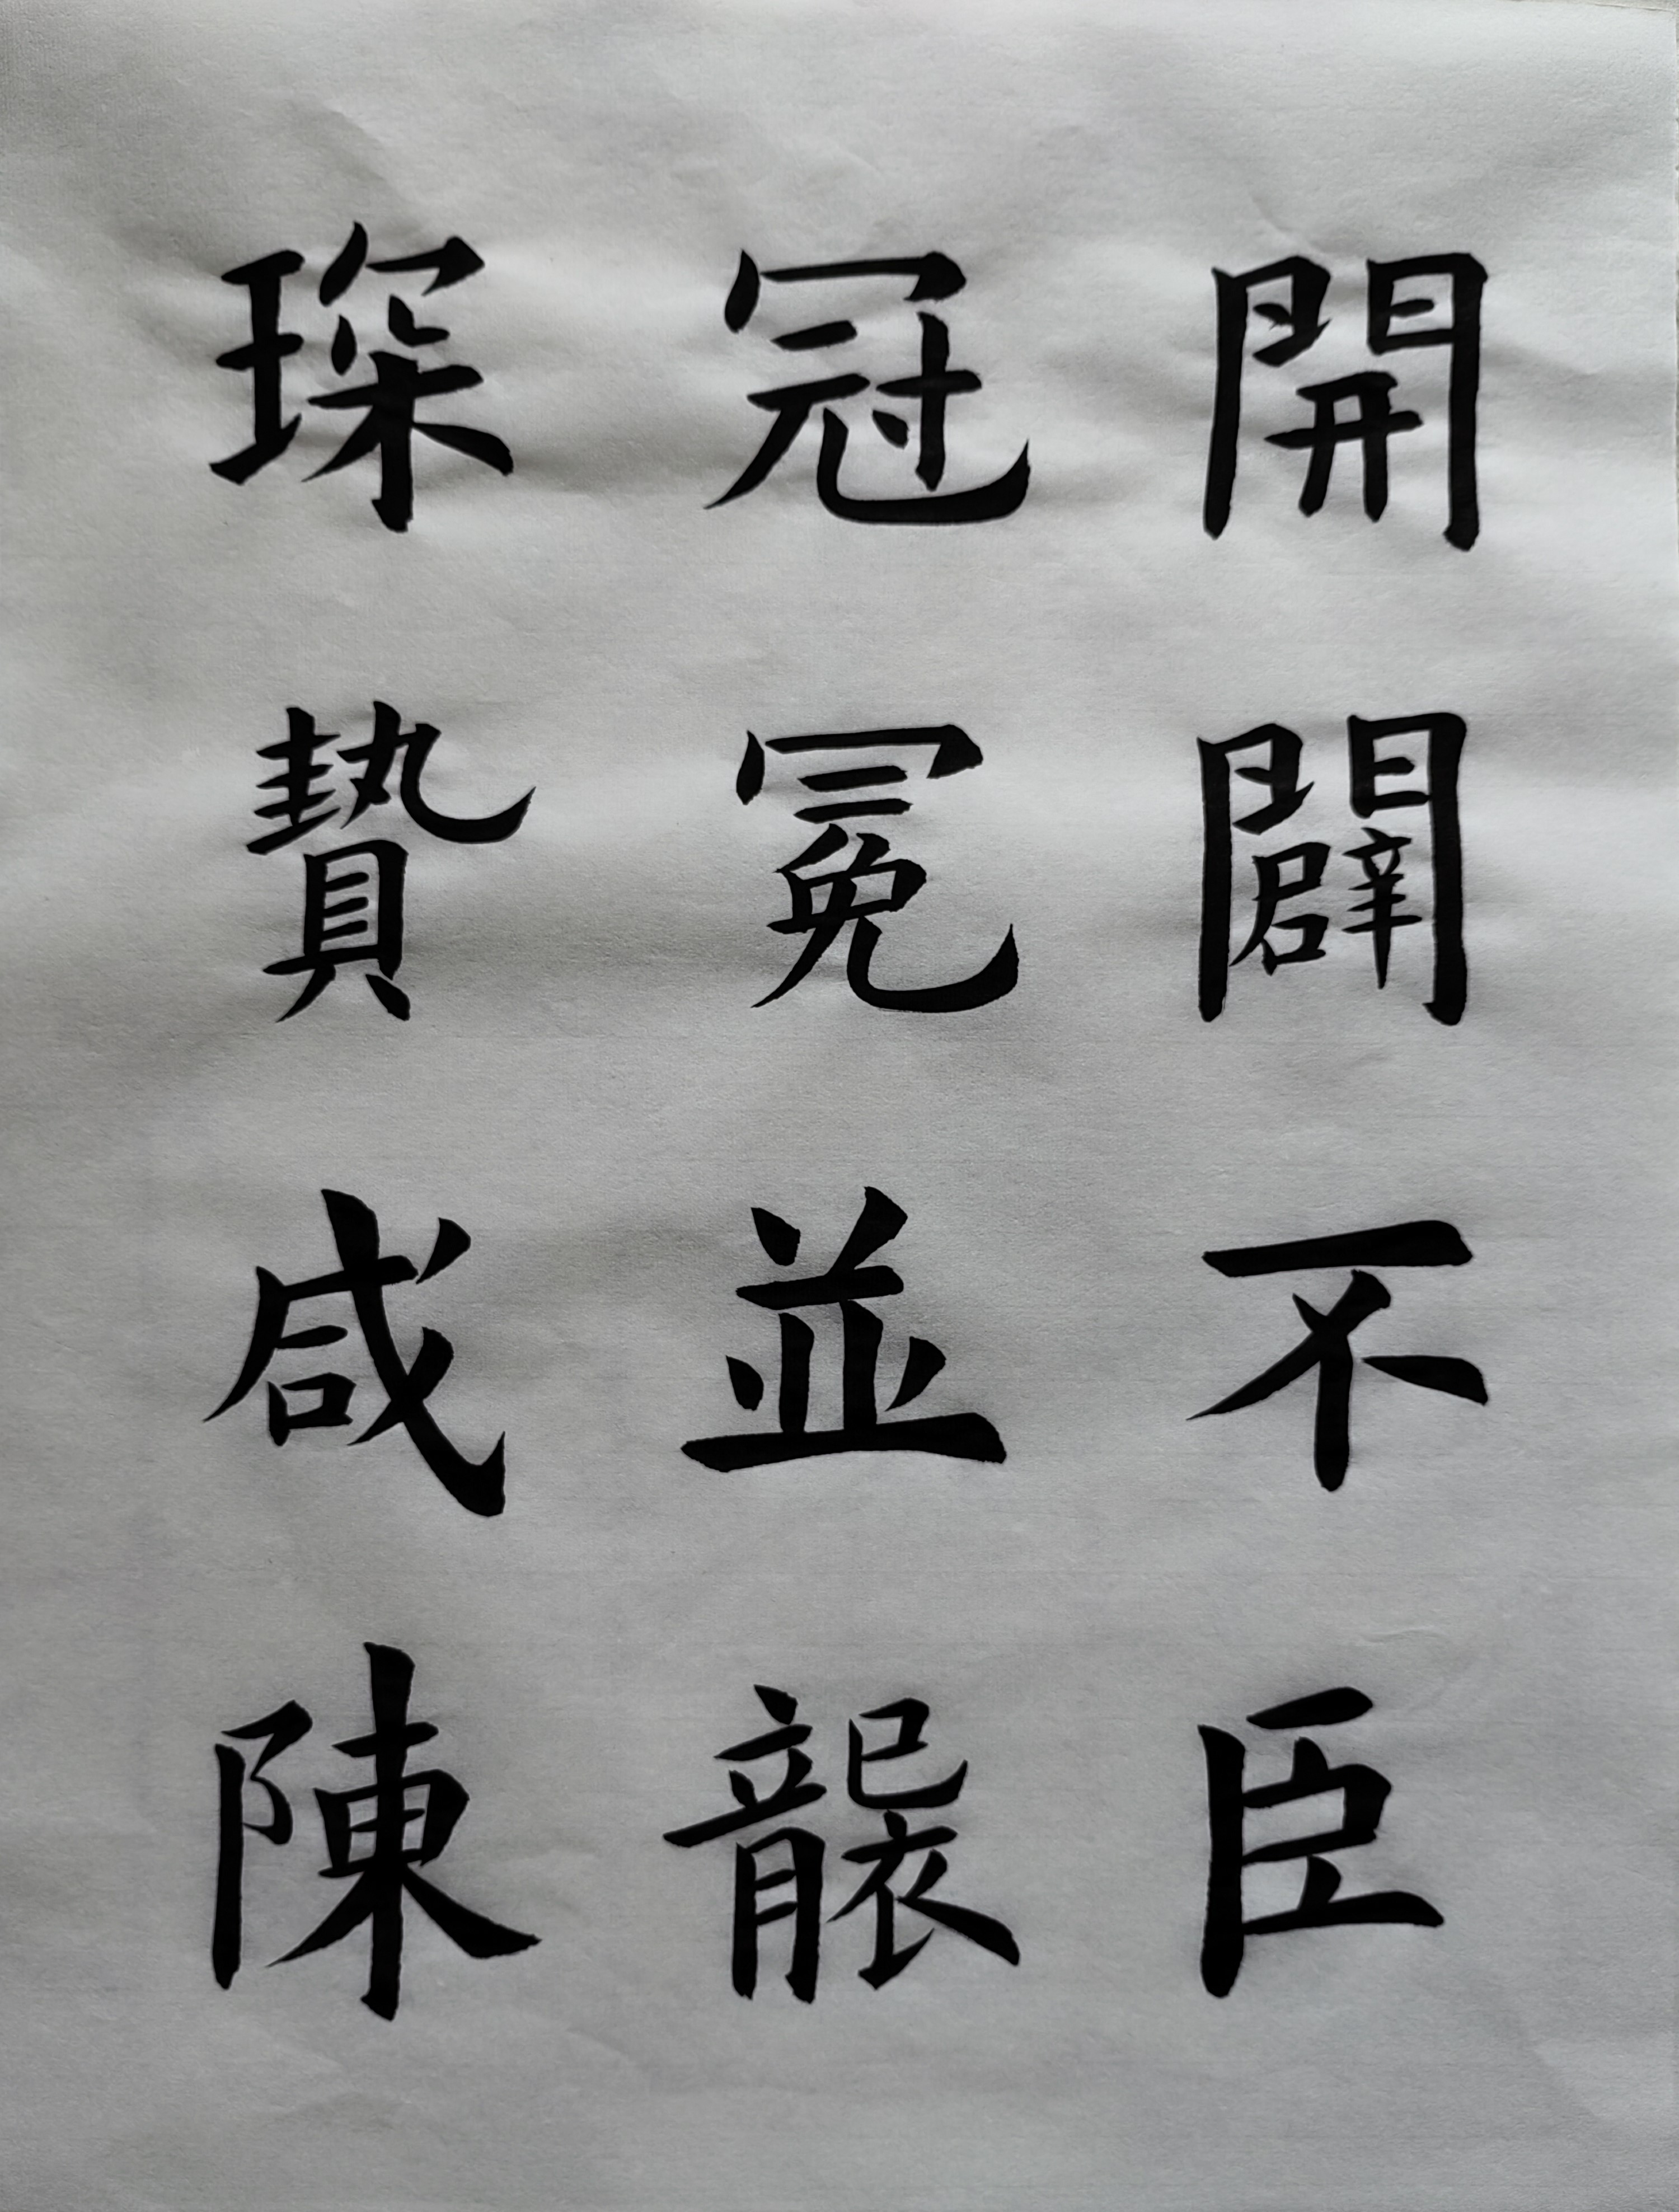 開闢不臣
冠冕並襲
琛贄咸陳